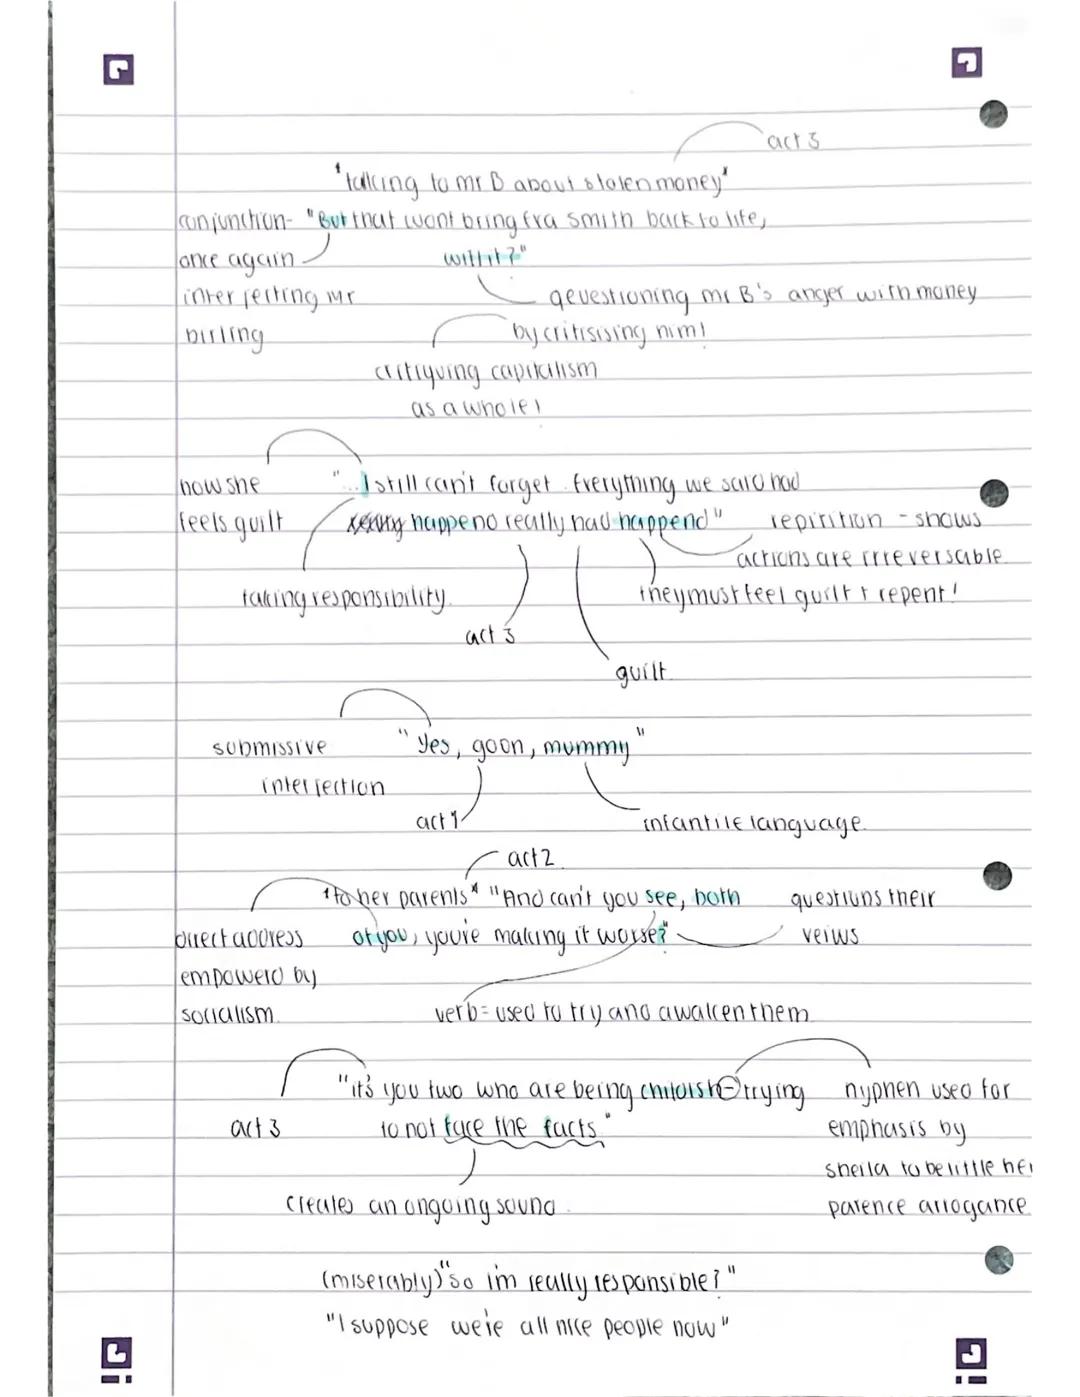 act 3
*talking to mr B about stolen money*
conjunction- "But that wont bring Eva Smith back to life,
once again will it?"
interjecting Mr qeuestioning mr B's anger with money
birling by critisising him!
critiquing capitalism
as a whole!
how she "...I still can't forget. Everything we said had
feels guilt happend really had happend" repitition - shows
actions are irreversable
taking responsibility. they must feel guilt + repent!
act 3
guilt.
submissive "Yes, goon, mummy"
interjection
act 1 infantile language.
act 2.
direct address *to her parents* "And can't you see, both questions their
empowerd by of you, you're making it worse?" veiws
socialism. verb = used to try and awaken them
"it's you two who are being childish - trying hyphen used for
act 3 to not face the facts." emphasis by
sheila to belittle her
creates an ongoing sound. parence arrogance.
(miserably) "so i'm really responsible?"
"I suppose we're all nice people now"